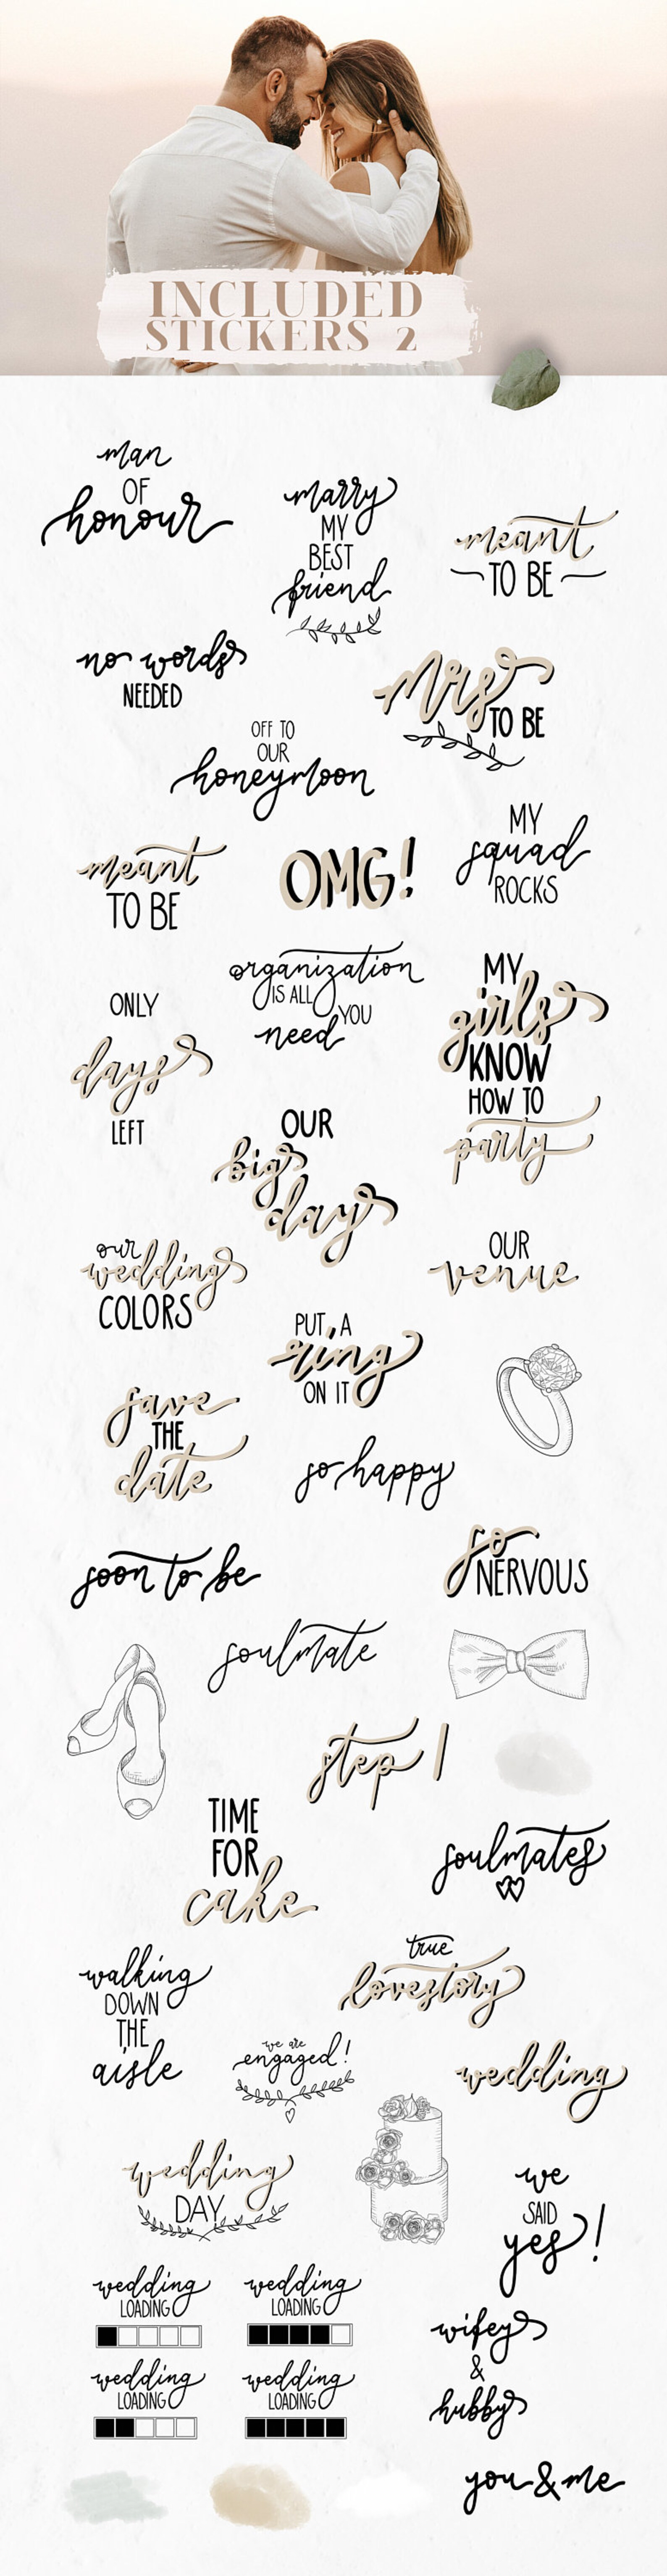 INCLUDED
STICKERS 2
man
OF
honour
marry
MY
BEST
friend
meant
TO BE
no words
NEEDED
Mrs
TO BE
OFF TO
OUR
honeymoon
MY
squad
ROCKS
meant
TO BE
OMG!
organization
IS ALL
YOU
need
MY
girls
KNOW
HOW TO
party
ONLY
days
LEFT
OUR
big
day
our
wedding
COLORS
OUR
venue
PUT A
ring
ON IT
save
THE
date
so happy
so
NERVOUS
soon to be
soulmate
step 1
TIME
FOR
cake
soulmates
true
lovestory
walking
DOWN
THE
aisle
we are
engaged!
wedding
wedding
DAY
we
SAID
yes!
wedding
LOADING
wedding
LOADING
wifey
&
hubby
wedding
LOADING
wedding
LOADING
you & me